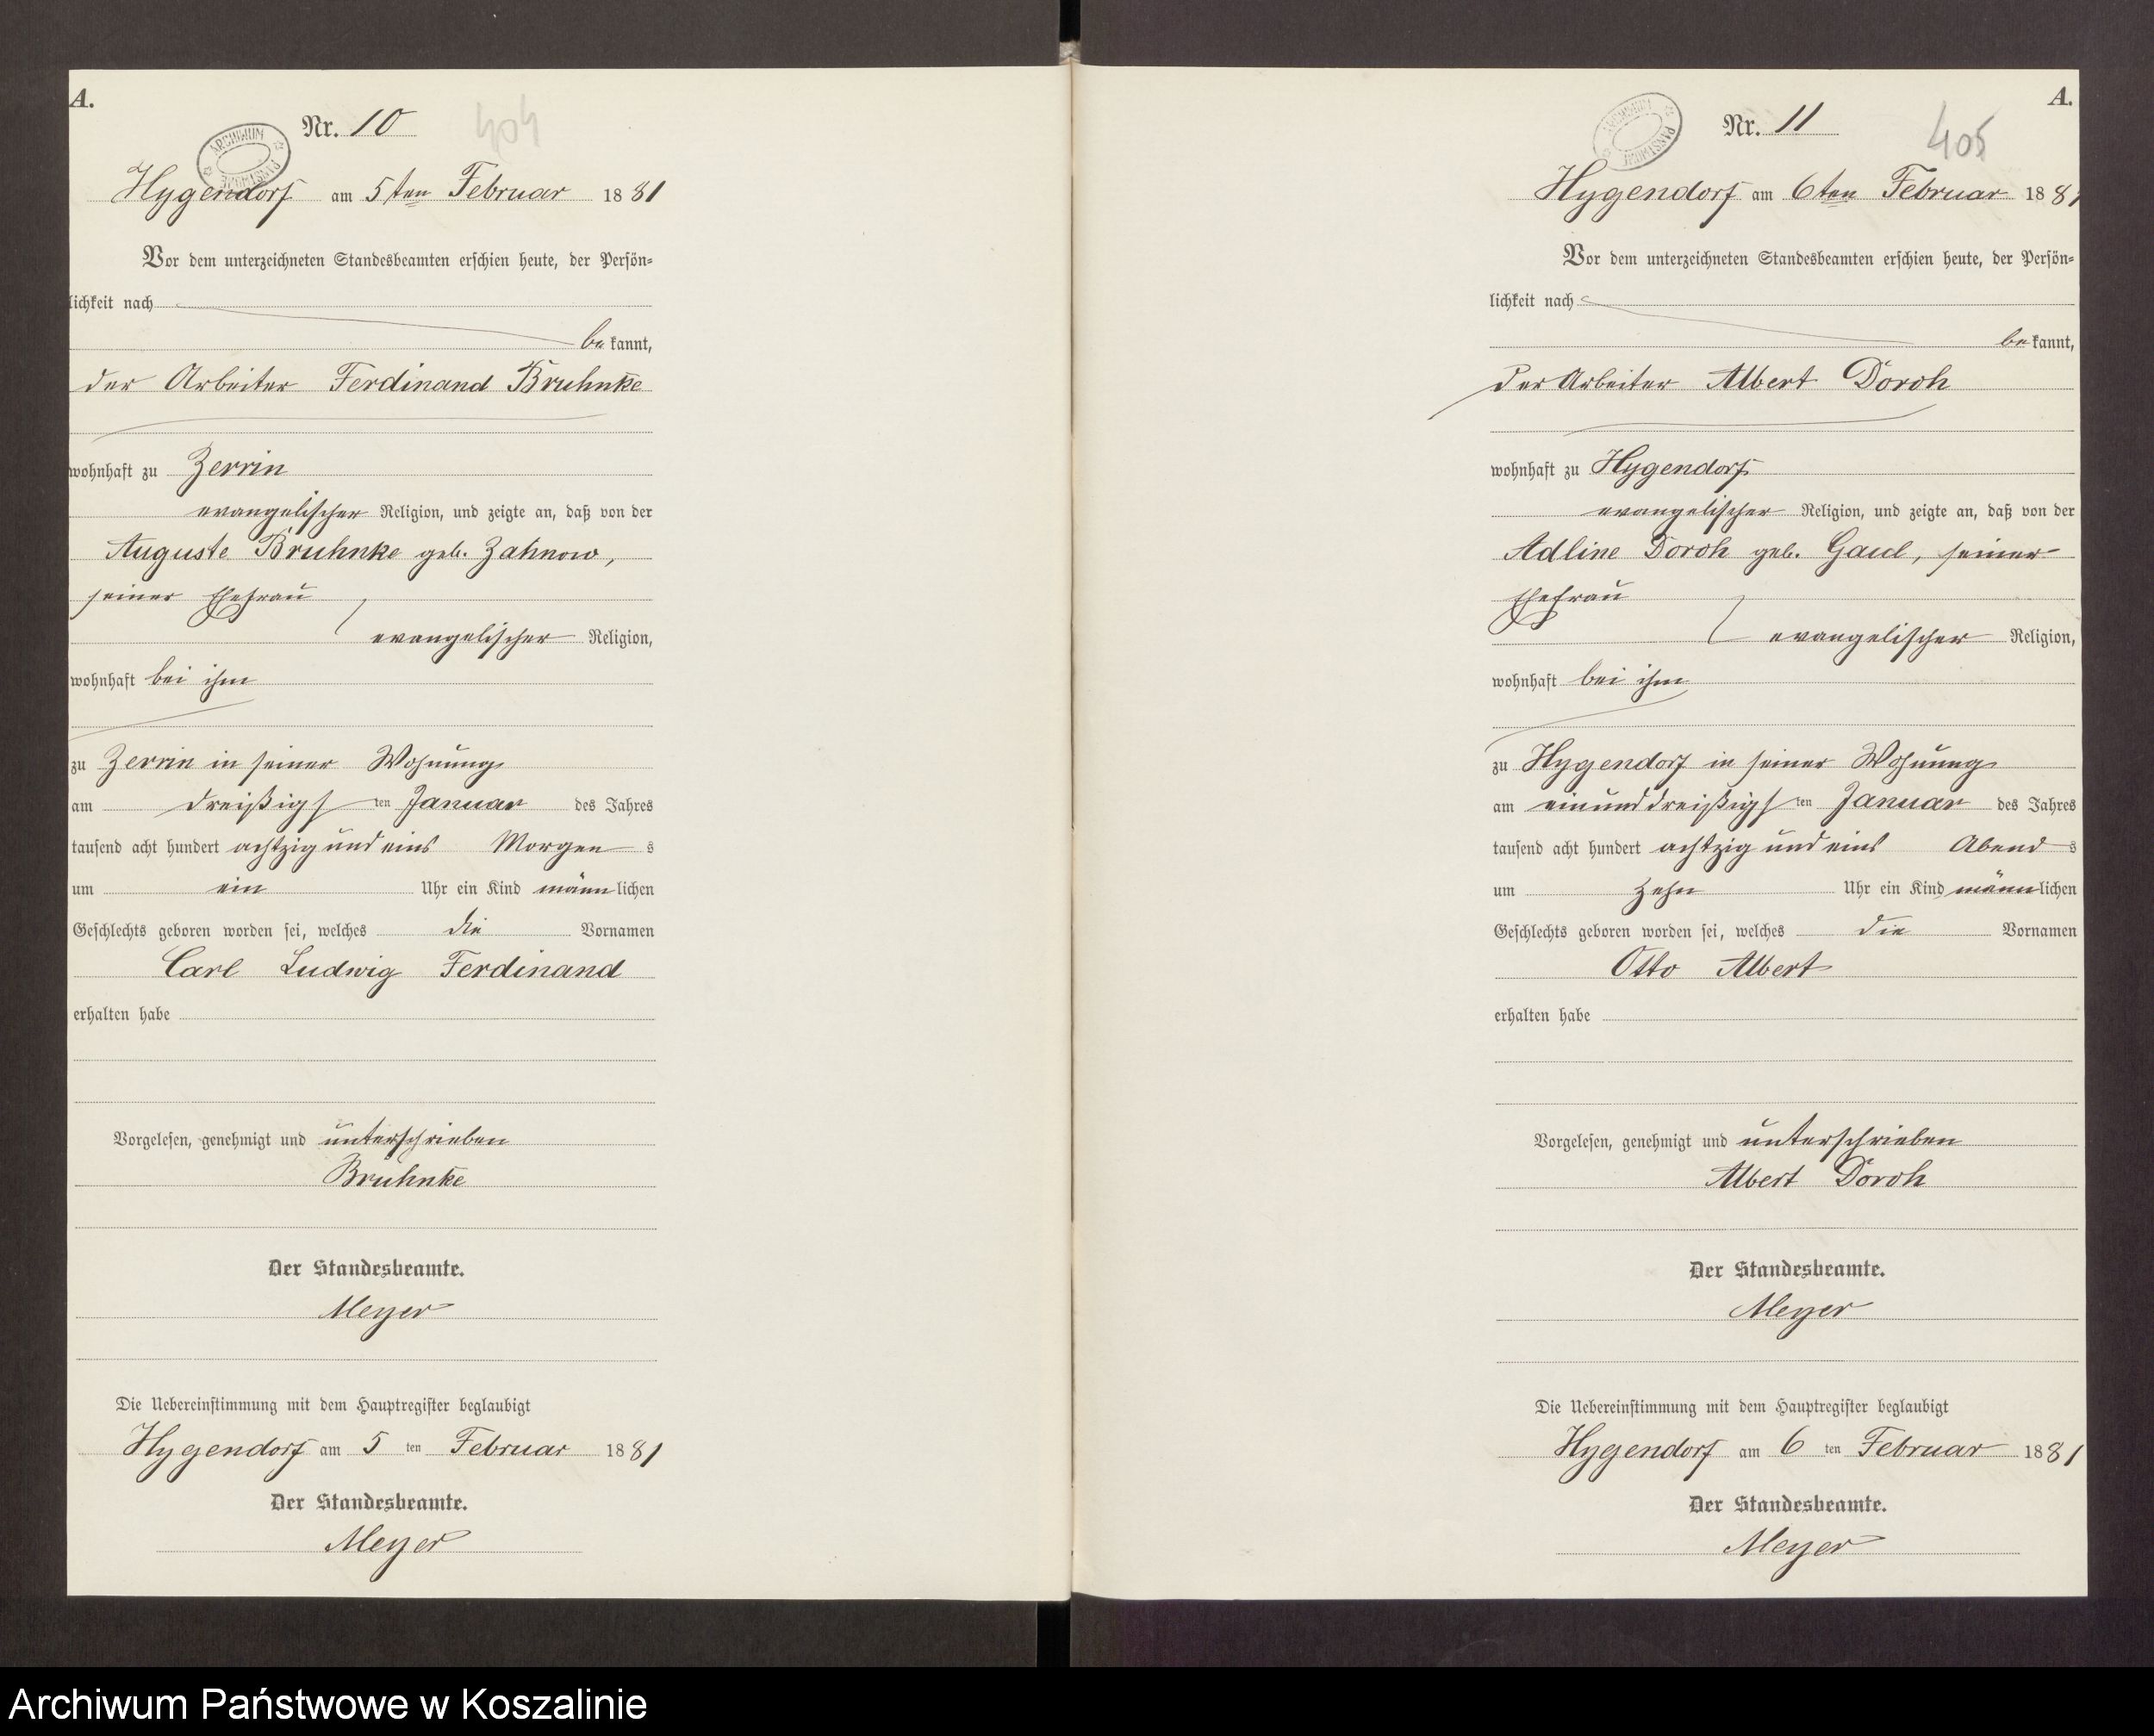 A.
Nr. 10
404
ARCHIWUM PAŃSTWOWE
Hygendorf am 5ten Februar 1881
Vor dem unterzeichneten Standesbeamten erschien heute, der Persön-
lichkeit nach
bekannt,
der Arbeiter Ferdinand Bruhnke
wohnhaft zu Zerrin
evangelischer Religion, und zeigte an, daß von der
Auguste Bruhnke geb. Zahnow,
seiner Ehefrau
evangelischer Religion,
wohnhaft bei ihm
zu Zerrin in seiner Wohnung
am dreißigsten Januar des Jahres
tausend acht hundert achtzig und eins Morgens
um ein Uhr ein Kind männlichen
Geschlechts geboren worden sei, welches die Vornamen
Carl Ludwig Ferdinand
erhalten habe
Vorgelesen, genehmigt und unterschrieben
Bruhnke
Der Standesbeamte.
Meyer
Die Uebereinstimmung mit dem Hauptregister beglaubigt
Hygendorf am 5ten Februar 1881
Der Standesbeamte.
Meyer
A.
Nr. 11
405
ARCHIWUM PAŃSTWOWE
Hygendorf am 6ten Februar 1881
Vor dem unterzeichneten Standesbeamten erschien heute, der Persön-
lichkeit nach
bekannt,
der Arbeiter Albert Doroh
wohnhaft zu Hygendorf
evangelischer Religion, und zeigte an, daß von der
Adline Doroh geb. Gaul, seiner
Ehefrau
evangelischer Religion,
wohnhaft bei ihm
zu Hygendorf in seiner Wohnung
am einunddreißigsten Januar des Jahres
tausend acht hundert achtzig und eins Abends
um zehn Uhr ein Kind männlichen
Geschlechts geboren worden sei, welches die Vornamen
Otto Albert
erhalten habe
Vorgelesen, genehmigt und unterschrieben
Albert Doroh
Der Standesbeamte.
Meyer
Die Uebereinstimmung mit dem Hauptregister beglaubigt
Hygendorf am 6ten Februar 1881
Der Standesbeamte.
Meyer
Archiwum Państwowe w Koszalinie